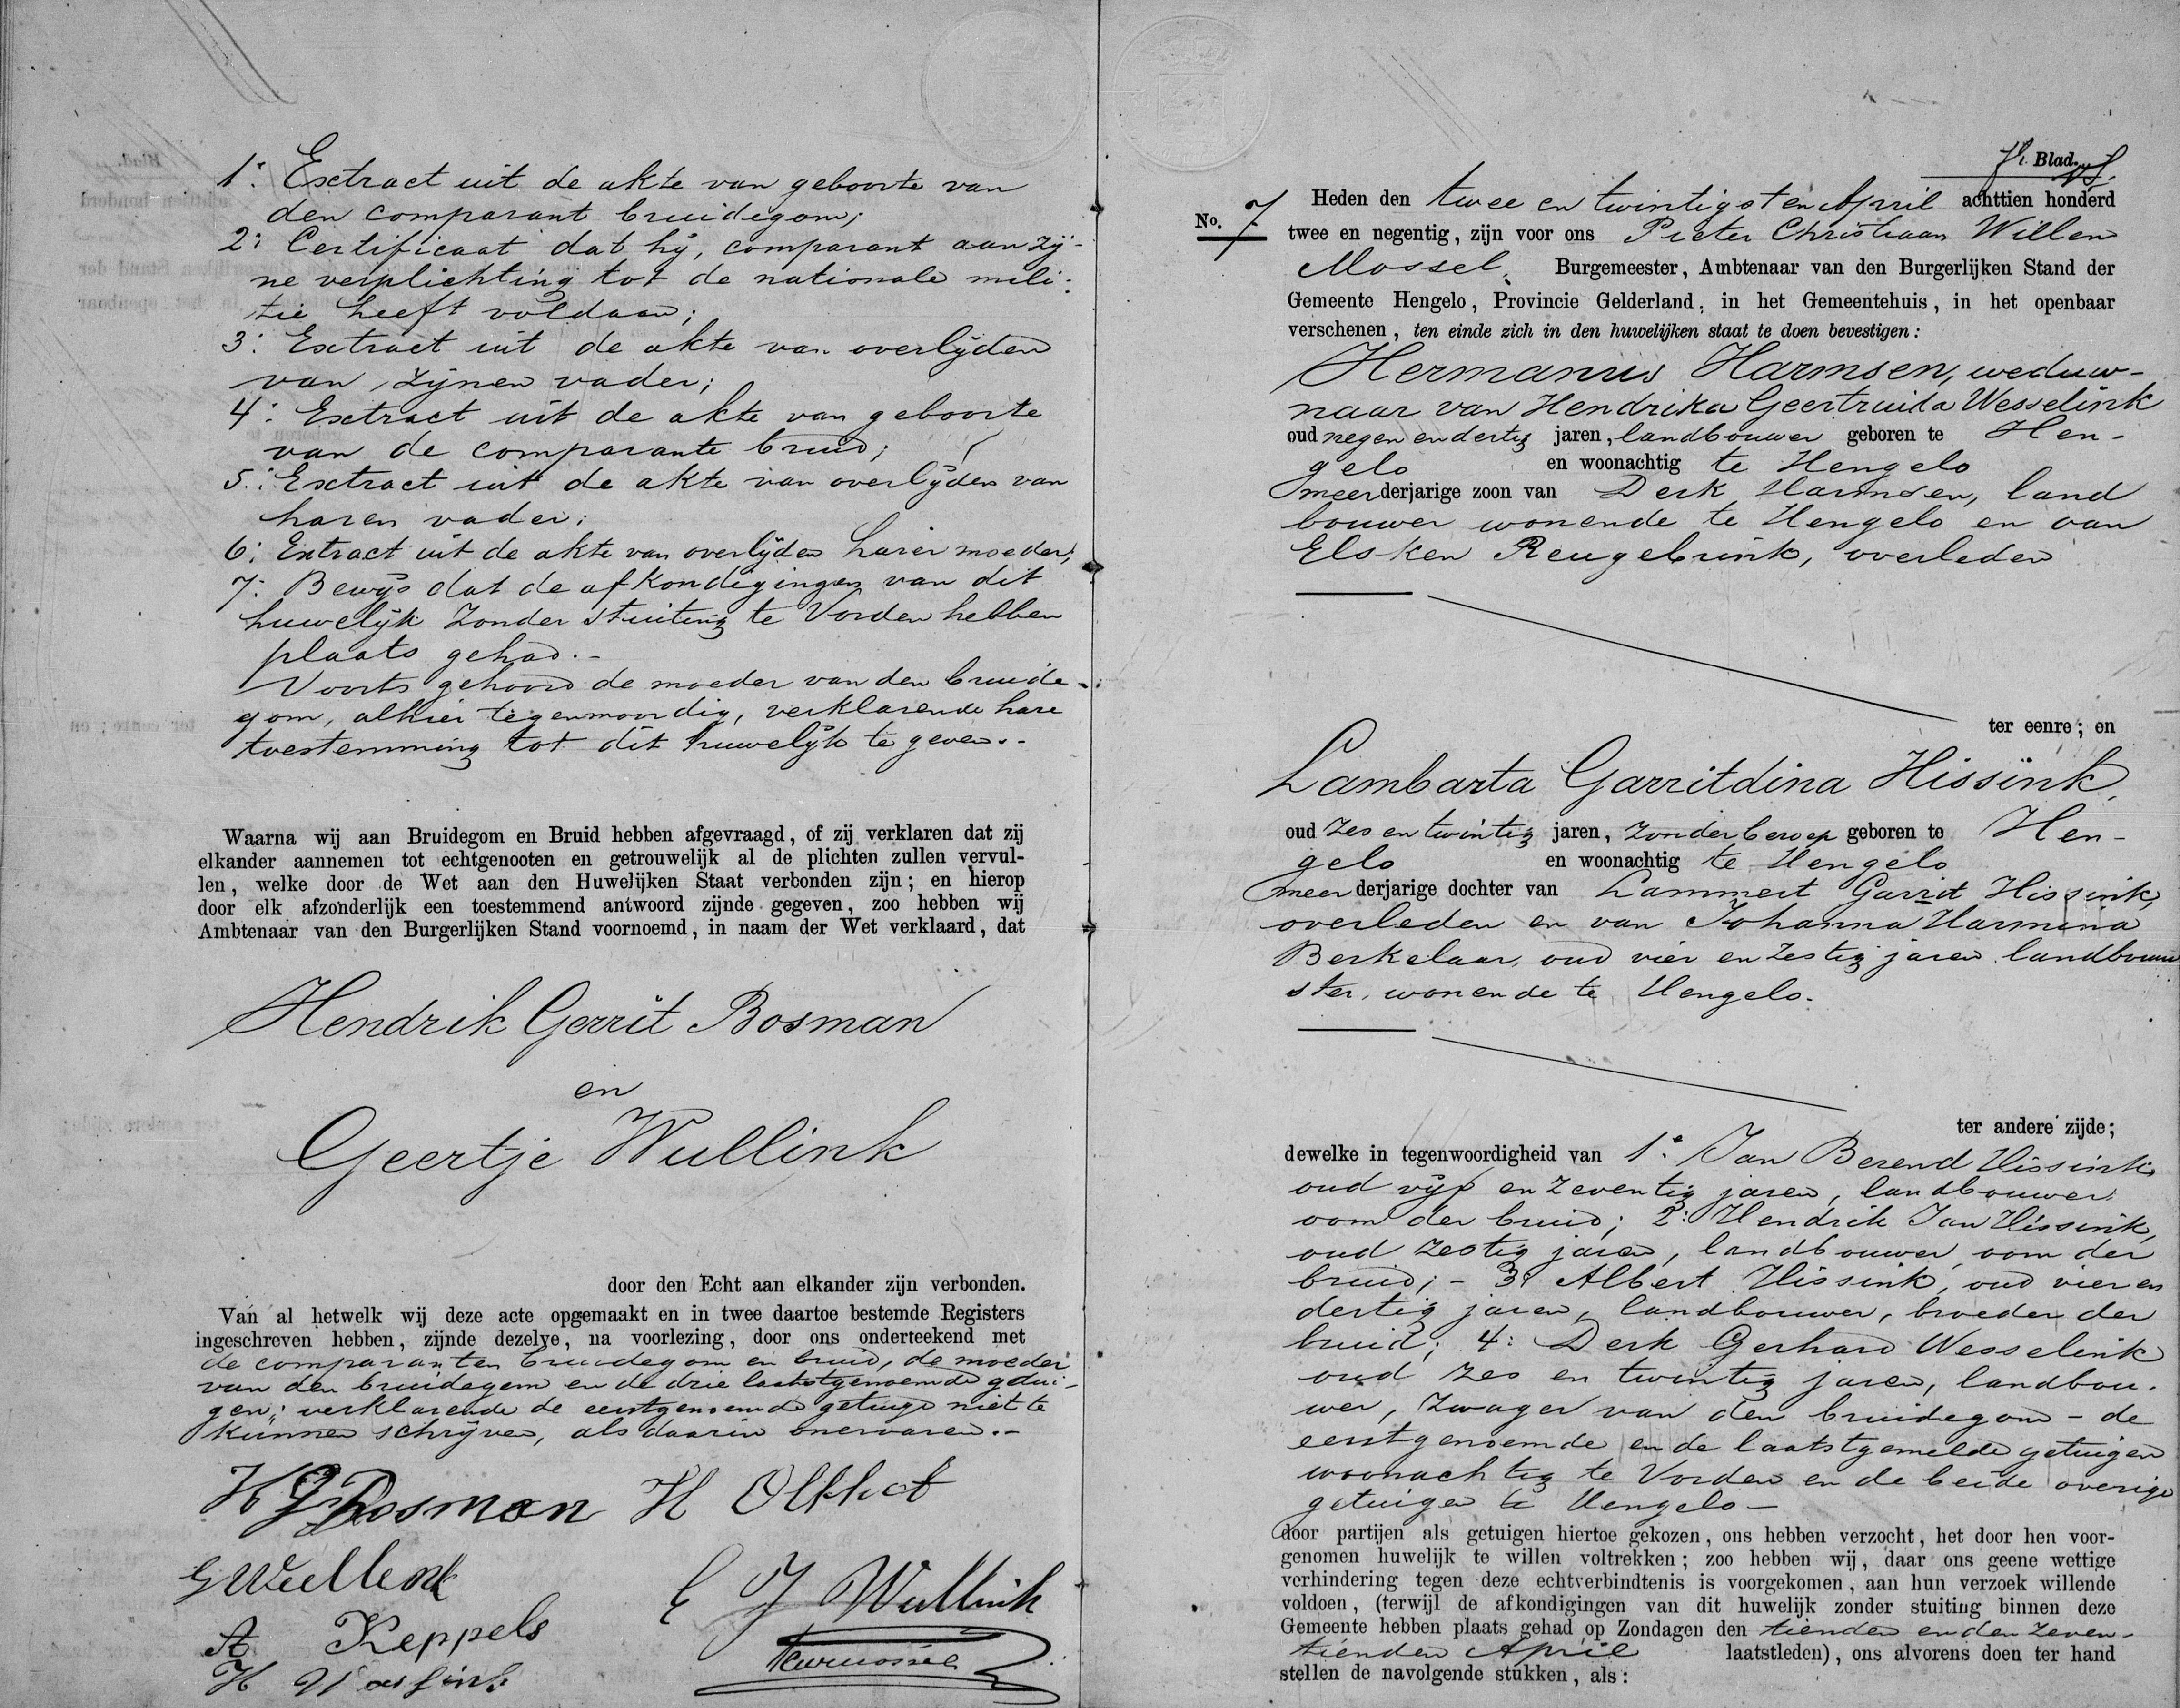 1°. Extract uit de akte van geboorte van
den comparant bruidegom;
2: Certificaat dat hij, comparant aan zij-
ne verplichting tot de nationale mili-
tie heeft voldaan;
3: Extract uit de akte van overlijden
van zijnen vader;
4: Extract uit de akte van geboorte
van de comparante bruid;
5: Extract uit de akte van overlijden van
haren vader;
6: Extract uit de akte van overlijden harer moeder;
7: Bewijs dat de afkondigingen van dit
huwelijk zonder stuiting te Vorden hebben
plaats gehad.-
Voorts gehoord de moeder van den bruide-
gom, alhier tegenwoordig, verklarende hare
toestemming tot dit huwelijk te geven.-
Waarna wij aan Bruidegom en Bruid hebben afgevraagd, of zij verklaren dat zij
elkander aannemen tot echtgenooten en getrouwelijk al de plichten zullen vervul-
len, welke door de Wet aan den Huwelijken Staat verbonden zijn; en hierop
door elk afzonderlijk een toestemmend antwoord zijnde gegeven, zoo hebben wij
Ambtenaar van den Burgerlijken Stand voornoemd, in naam der Wet verklaard, dat
Hendrik Gerrit Bosman
en
Geertje Wullink
door den Echt aan elkander zijn verbonden.
Van al hetwelk wij deze acte opgemaakt en in twee daartoe bestemde Registers
ingeschreven hebben, zijnde dezelve, na voorlezing, door ons onderteekend met
de comparanten bruidegom en bruid, de moeder
van den bruidegom en de drie laatstgenoemde getui-
gen; verklarende de eerstgenoemde getuige niet te
kunnen schrijven, als daarin onervaren.-
H G Bosman H Olthof
G Wullink
E J Wullink
A Keppels
H
Blad.
No. 7
Heden den twee en twintigsten April achttien honderd
twee en negentig, zijn voor ons Pieter Christiaan Willem
Mossel, Burgemeester, Ambtenaar van den Burgerlijken Stand der
Gemeente Hengelo, Provincie Gelderland, in het Gemeentehuis, in het openbaar
verschenen, ten einde zich in den huwelijken staat te doen bevestigen:
Hermanus Harmsen, weduw-
naar van Hendrika Geertruida Wesselink
oud negen en dertig jaren, landbouwer geboren te Hen-
gelo en woonachtig te Hengelo
meerderjarige zoon van Derk Harmsen, land
bouwer wonende te Hengelo en van
Elsken Reugebrink, overleden
ter eenre; en
Lambarta Garritdina Hissink,
oud zes en twintig jaren, zonder beroep geboren te Hen-
gelo en woonachtig te Hengelo
meerderjarige dochter van Lammert Garrit Hissink,
overleden en van Johanna Harmina
Berkelaar, oud vier en zestig jaren landbouw
ster, wonende te Hengelo.
ter andere zijde;
dewelke in tegenwoordigheid van 1°. Jan Berend Hissink,
oud vijf en zeventig jaren, landbouwer,
oom der bruid; 2: Hendrik Jan Hissink,
oud zestig jaren, landbouwer, oom der
bruid;- 3: Albert Hissink, oud vier en
dertig jaren, landbouwer, broeder der
bruid; 4: Derk Gerhard Wesselink
oud zes en twintig jaren, landbou-
wer, zwager van den bruidegom - de
eerstgenoemde en de laatstgemelde getuigen
woonachtig te Vorden en de beide overige
getuigen te Hengelo-
door partijen als getuigen hiertoe gekozen, ons hebben verzocht, het door hen voor-
genomen huwelijk te willen voltrekken; zoo hebben wij, daar ons geene wettige
verhindering tegen deze echtverbindtenis is voorgekomen, aan hun verzoek willende
voldoen, (terwijl de afkondigingen van dit huwelijk zonder stuiting binnen deze
Gemeente hebben plaats gehad op Zondagen den tienden en den zeven-
tienden April laatstleden), ons alvorens doen ter hand
stellen de navolgende stukken, als: